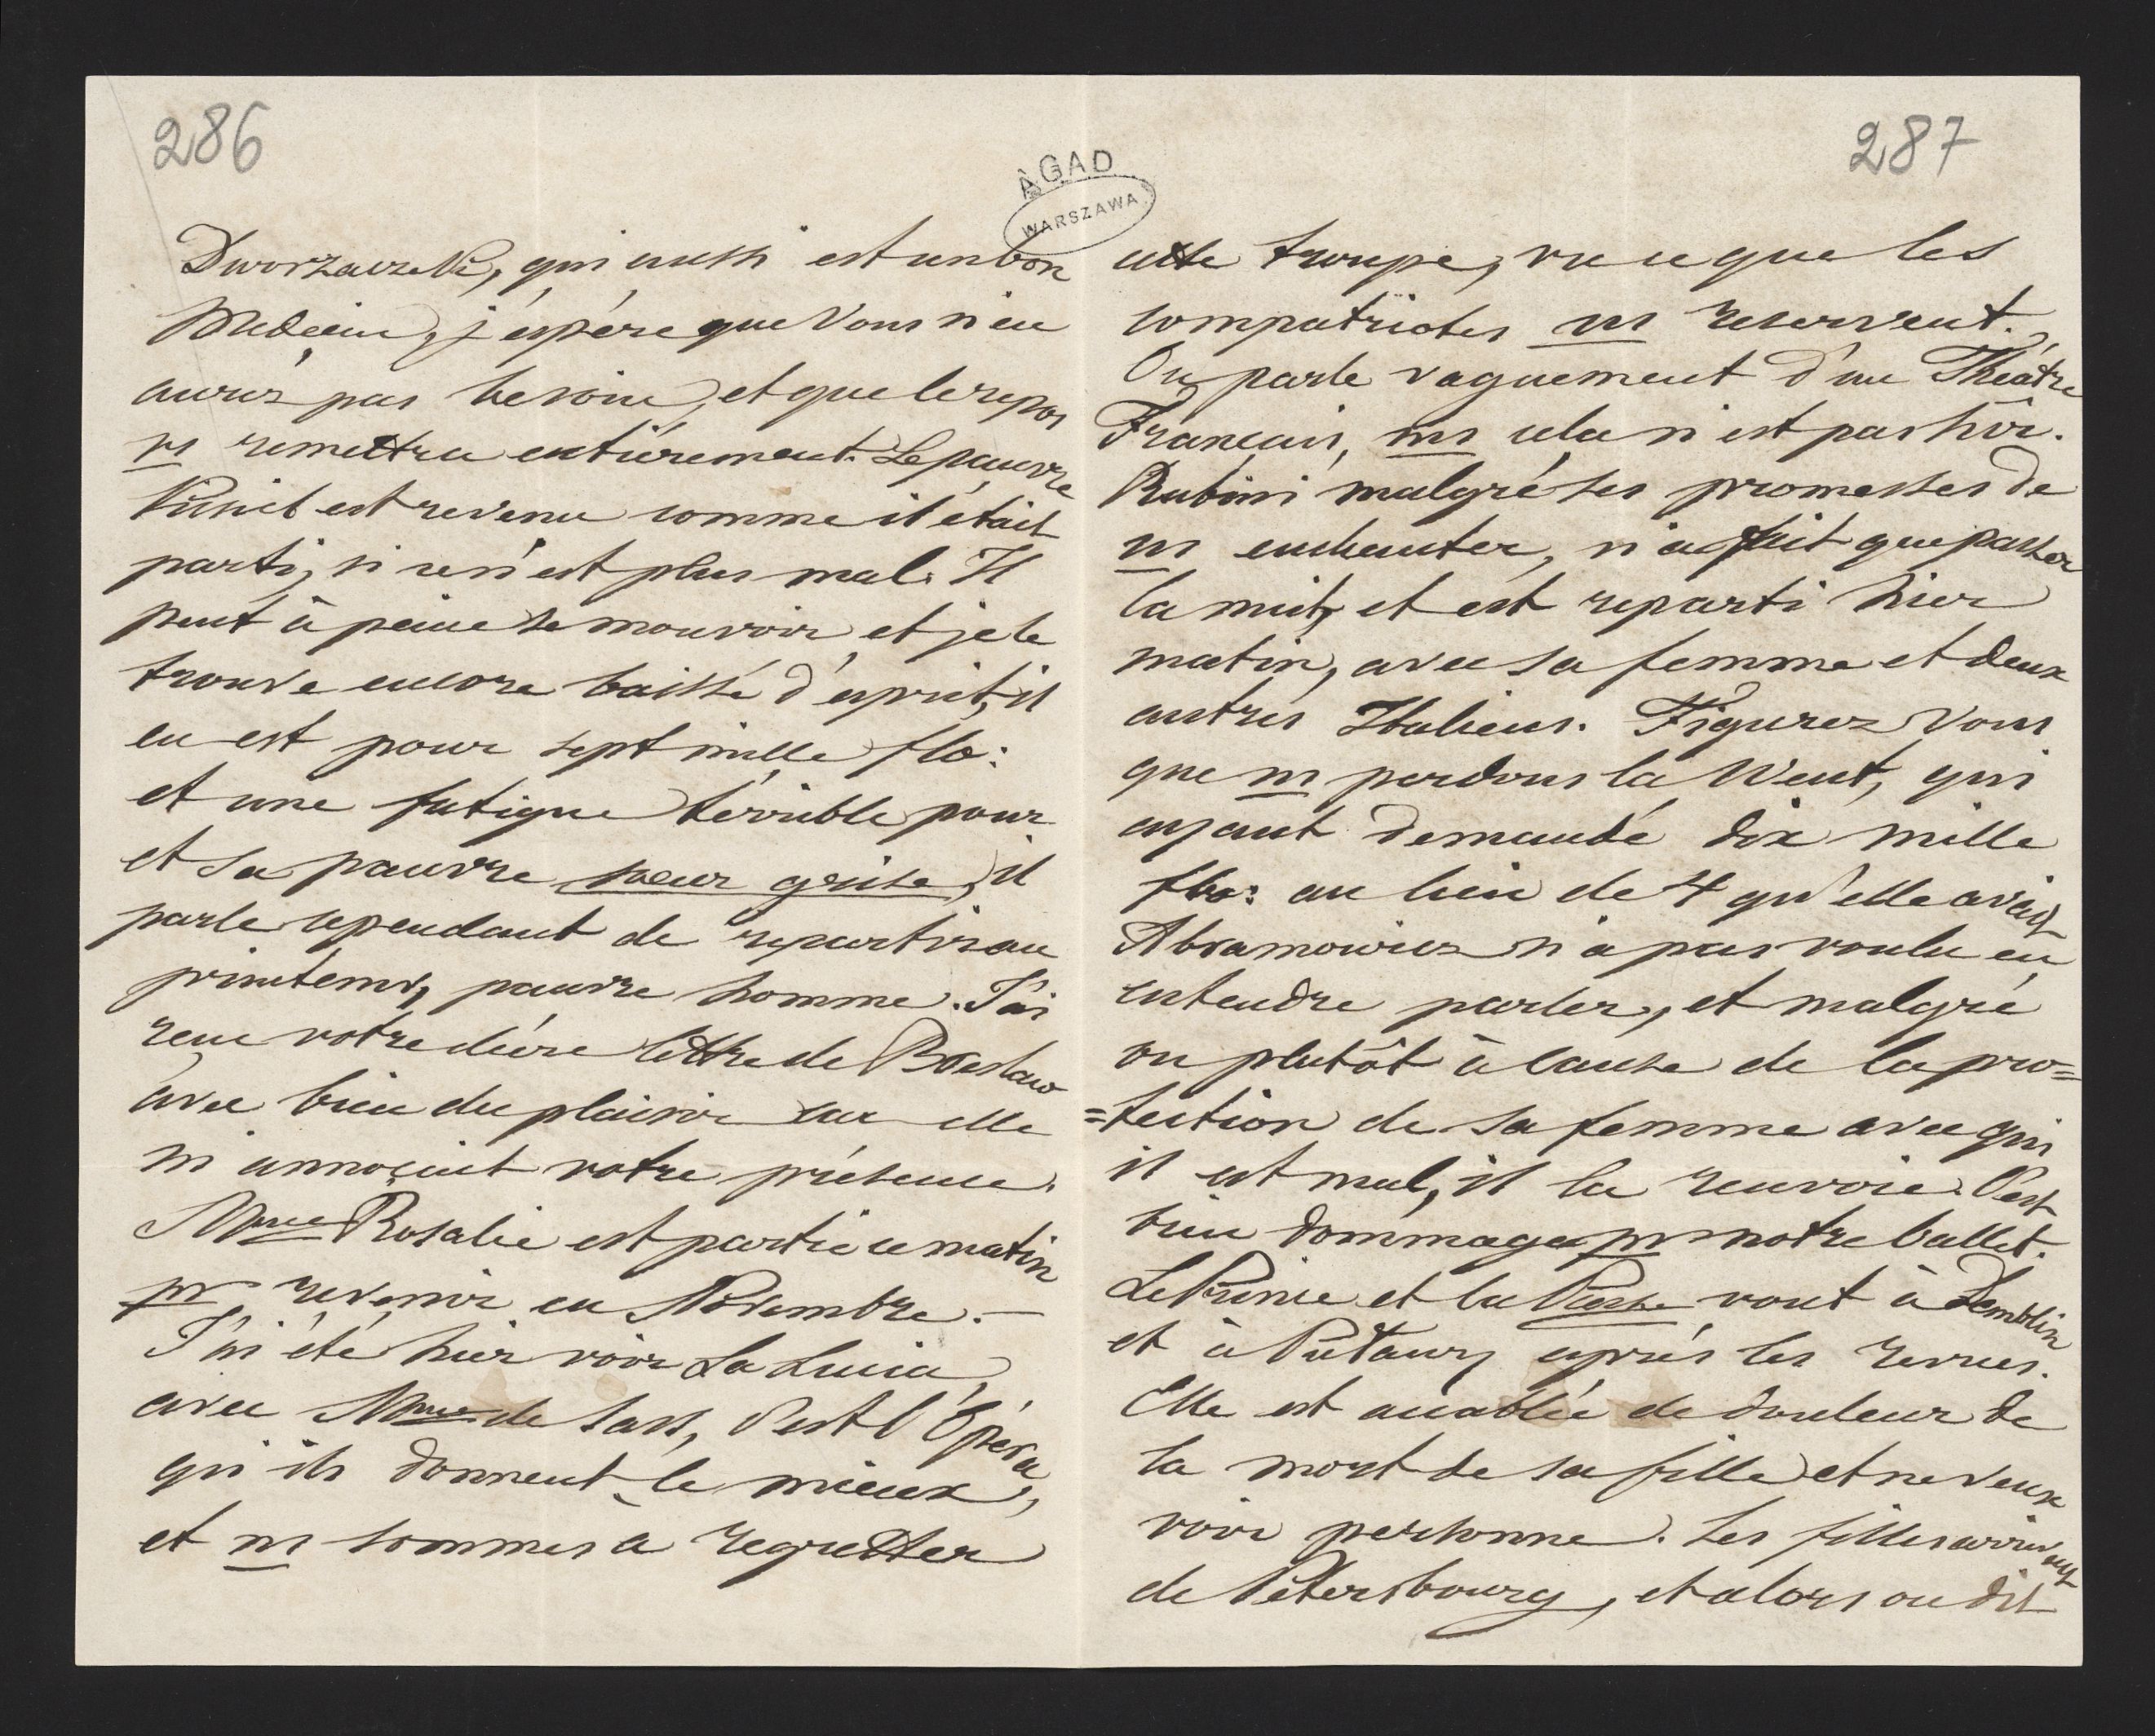 286
Dworzaczek, qui aussi est un bon
Médecin, j'espère que Vous n'en
aurez pas besoin, et que le repos
vs remettra entièrement. Le pauvre
est revenu comme il était
parti, si ce n'est plus mal. Il
peut à peine se mouvoir, et je le
trouve encore baissé d'esprit, il
en est pour sept mille flo:
et une fatigue terrible pour
et sa pauvre soeur grise, il
parle cependant de repartir au
printems, pauvre homme. J'ai
recu votre chère lettre de Breslaw
avec bien du plaisir car elle
m'annoçait votre présence.
Mme Rosalie est partie ce matin
pr revenir en Novembre. —
J'ai été hier voir La Lucia,
avec Mme de Sass, c'est l'Opéra
qu'ils donnent le mieux,
et ns sommes a regretter
AGAD
WARSZAWA
287
cette troupe, vu ce que les
compatriotes ns reservent.
On parle vaguement d'un Théâtre
Francais, ms cela n'est pas sûr.
Rubini malgré ses promesses de
ns enchanter, n'a fait que passer
la nuit, et est reparti hier
matin, avec sa femme et deux
autres Italiens. Figurez Vous
que ns perdons la Went, qui
ayant demandé dix mille
flo: au lieu de 4 qu'elle avait
Abramowicz n'a pas voulu en
entendre parler, et malgré
ou plutôt à cause de la pro=
=tection de sa femme avec qui
il est mal, il la renvoie. C'est
bien dommage pr notre ballet.
Le Prince et la Psse vont à Demblin
et à Puławy après les revues.
Elle est accablée de douleur de
la mort de sa fille et ne veux
voir personne. Ses filles arrivent
de Pétersbourg, et alors on dit